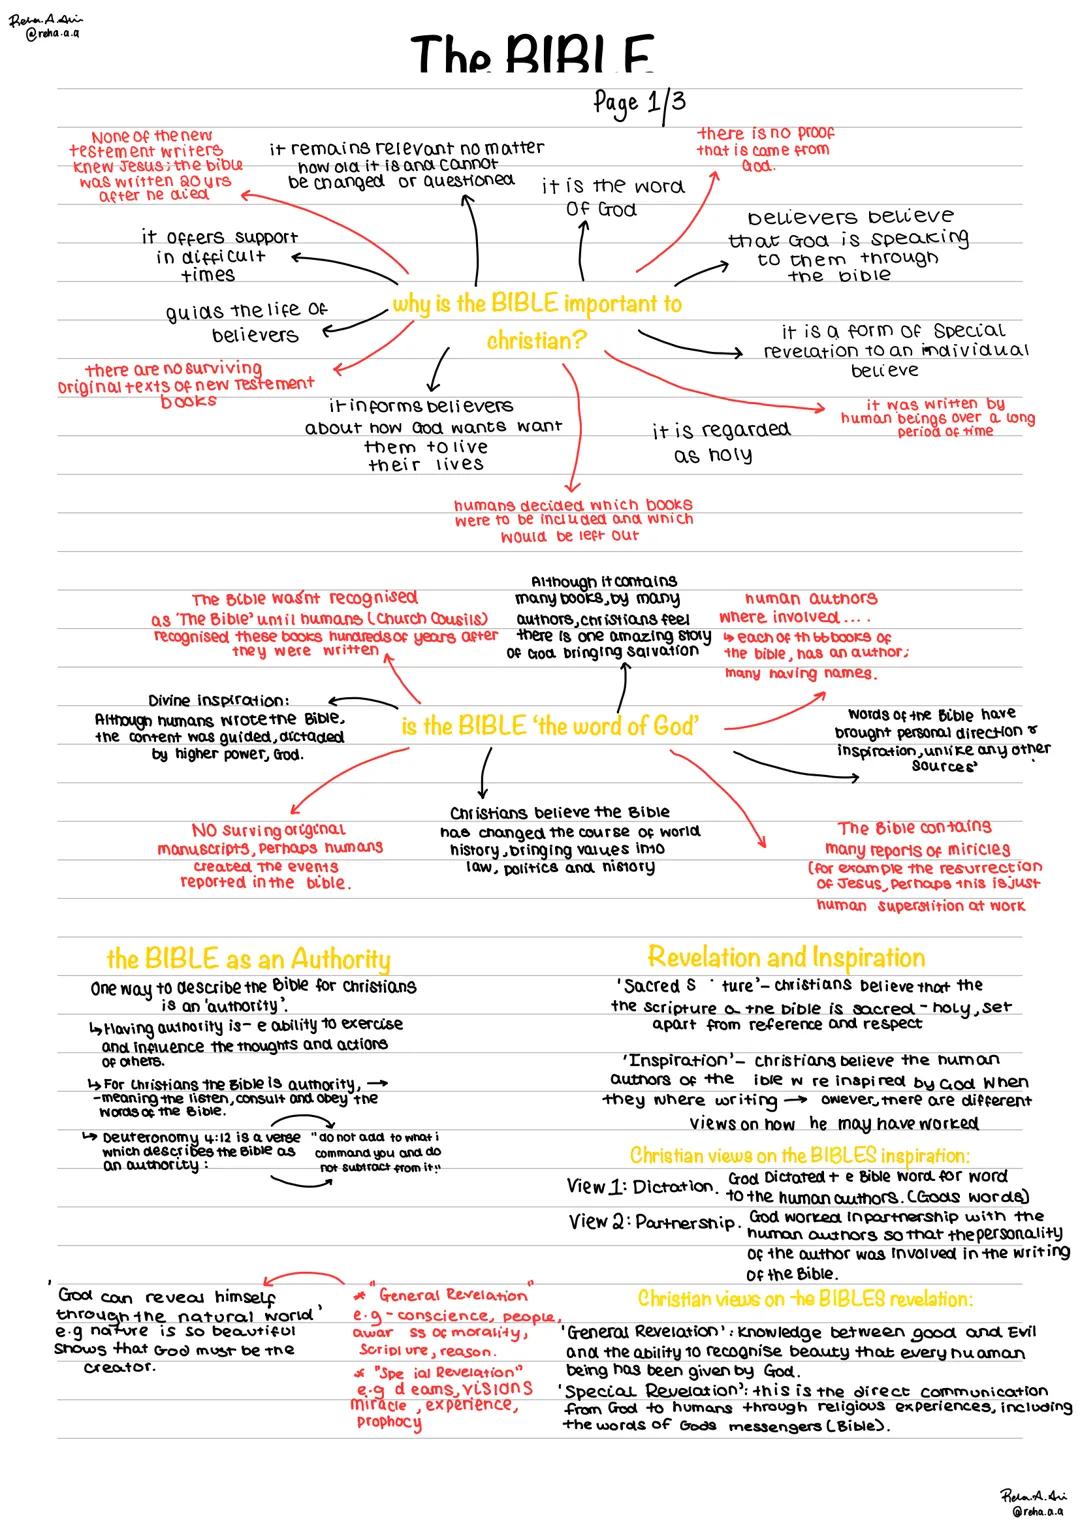 Reha.A.Ari
@reha.a.a
The BIBLE
Page 1/3
None of the new
testement writers
knew Jesus; the bible
was written 20 yrs
after he died
it remains relevant no matter
how old it is and cannot
be changed or questioned
it is the word
of God
there is no proof
that is came from
God.
it offers support
in difficult
times
believers believe
that God is speaking
to them through
the bible
guids the life of
believers
why is the BIBLE important to
christian?
it is a form of special
revelation to an individual
believe
there are no surviving
original texts of new Testement
books
it informs believers
about how God wants want
them to live
their lives
it is regarded
as holy
it was written by
human beings over a long
period of time
humans decided which books
were to be included and which
would be left out
The Bible wasn't recognised
as 'The Bible' until humans (Church Cousils)
recognised these books hundreds of years after
they were written
Although it contains
many books, by many
authors, christians feel
there is one amazing story
of God bringing salvation
human authors
where involved....
↳ each of th 66 books of
the bible, has an author;
many having names.
Divine inspiration:
Although humans wrote the Bible,
the content was guided, dictaded
by higher power, God.
is the BIBLE 'the word of God'
words of the Bible have
brought personal direction &
inspiration, unlike any other
sources'
NO surving original
manuscripts, perhaps humans
created the events
reported in the bible.
Christians believe the Bible
has changed the course of world
history, bringing values into
law, politics and history
The Bible contains
many reports of miricles
(for example the resurrection
of Jesus, perhaps this is just
human superstition at work
the BIBLE as an Authority
One way to describe the Bible for Christians
is an 'authority'.
↳ Having authority is - e ability to exercise
and influence the thoughts and actions
of others.
↳ For Christians the Bible is authority, →
-meaning the listen, consult and obey the
words of the Bible.
↳ Deuteronomy 4:12 is a verse
which describes the Bible as
an authority:
"do not add to what i
command you and do
not subtract from it"
Revelation and Inspiration
'Sacred S ture' - christians believe that the
the scripture a the bible is sacred - holy, set
apart from reference and respect
'Inspiration' - christians believe the human
authors of the ible w re inspired by God when
they where writing → owever, there are different
views on how he may have worked
Christian views on the BIBLES inspiration:
View 1: Dictation. God Dictated t e Bible word for word
to the human authors. (Gods words)
View 2: Partnership. God worked in partnership with the
human authors so that the personality
of the author was involved in the writing
of the Bible.
Christian views on the BIBLES revelation:
'General Revelation': Knowledge between good and Evil
and the ability to recognise beauty that every huaman
being has been given by God.
'Special Revelation': this is the direct communication
from God to humans through religious experiences, including
the words of Gods messengers (Bible).
'God can reveal himself
through the natural world'
e.g nature is so beautiful
shows that God must be the
creator.
* "General Revelation"
e.g - conscience, people,
awar ss of morality,
Script ure, reason.
* "Spe ial Revelation"
e.g d eams, visions
miracle, experience,
prophocy
Reha.A.Ari
@reha.a.a